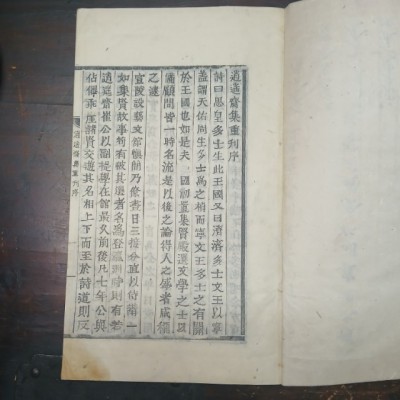 逍遙齋集重刊序
詩曰思皇多士生此王國又曰濟濟多士文王以寧
蓋謂天佑周生多士爲之楨而寧文王多士之有關
於王國也如是夫 國朝置集賢殿選文學之士且
備顧問皆一時名流是以後之論得人之盛者咸
之
宣陵設藝文館 乃 三 直以
如集賢故事 有 其 者名爲 時則有若
逍遙齋崔公以副提學在館最久前後凡七年公與
佔畢 諸賢交遊其名相上下而至於詩道則
逍遙齋集重刊序